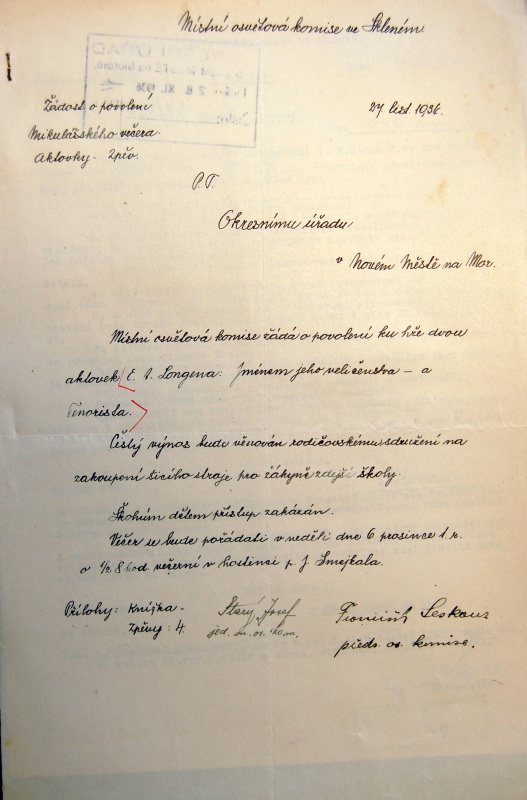 Místní osvětová komise ve Skleném
Žádost o povolení
Mikulášského večera.
Aktovky. Zpěv.
27 list 1936.
P.T.
Okresnímu úřadu
v Novém Městě na Mor.
Místní osvětová komise žádá o povolení ku hře dvou
aktovek E. A. Longena: Jménem jeho veličenstva – a
Tenorista.
Čistý výnos bude věnován rodičovskému sdružení na
zakoupení šicího stroje pro žákyně zdejší školy.
Školním dětem přístup zakázán.
Večer se bude pořádati v neděli dne 6 prosince t. r.
o 1/2 8 hod. večerní v hostinci p. J. Smejkala.
Přílohy: Knížka -
Zpěvy: 4.
Starý Josef
jed. m. os. kom.
předs. os. komise.